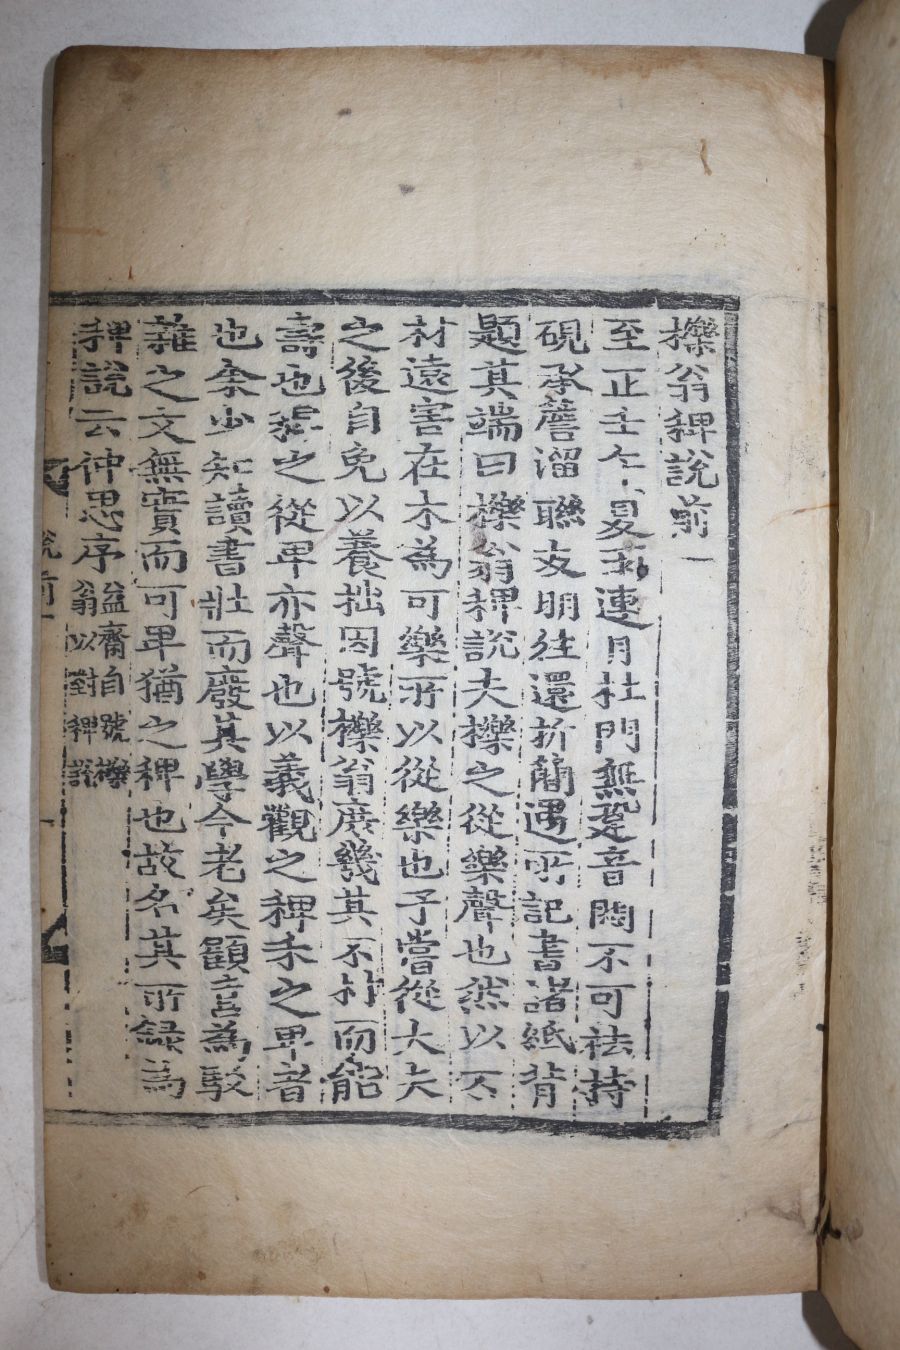 櫟翁稗說前一
至正壬午夏雨連月杜門無跫音悶不可袪持
硯承簷溜聯友朋往還折簡遇所記書諸紙背
題其端曰櫟翁稗說夫櫟之從樂聲也然以不
材遠害在木為可樂所以從樂也予嘗從大夫
之後自免以養拙因號櫟翁庶幾其不材而能
壽也稗之從卑亦聲也以義觀之稗禾之卑者
也余少知讀書壯而廢其學今老矣顧喜為駁
雜之文無實而可卑猶之稗也故名其所錄為
稗說云仲思序益齋自號櫟
翁以對稗說
說前一